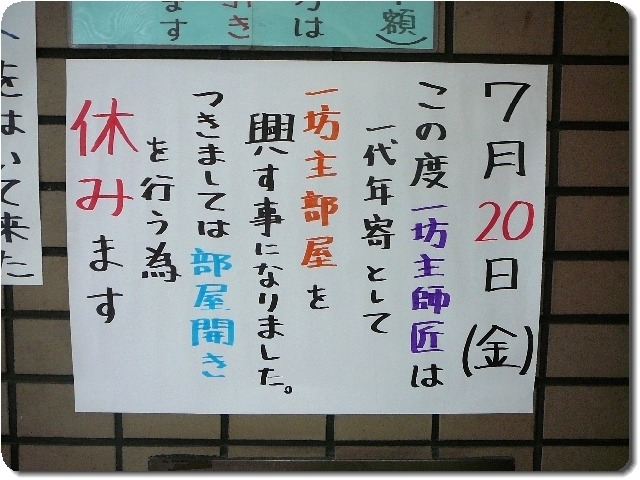 ７月20日(金)
この度一坊主師匠は
一代年寄として
一坊主部屋を
興す事になりました。
つきましては部屋開き
を行う為
休みます
額)
方は
引き
ます
をはいて来た